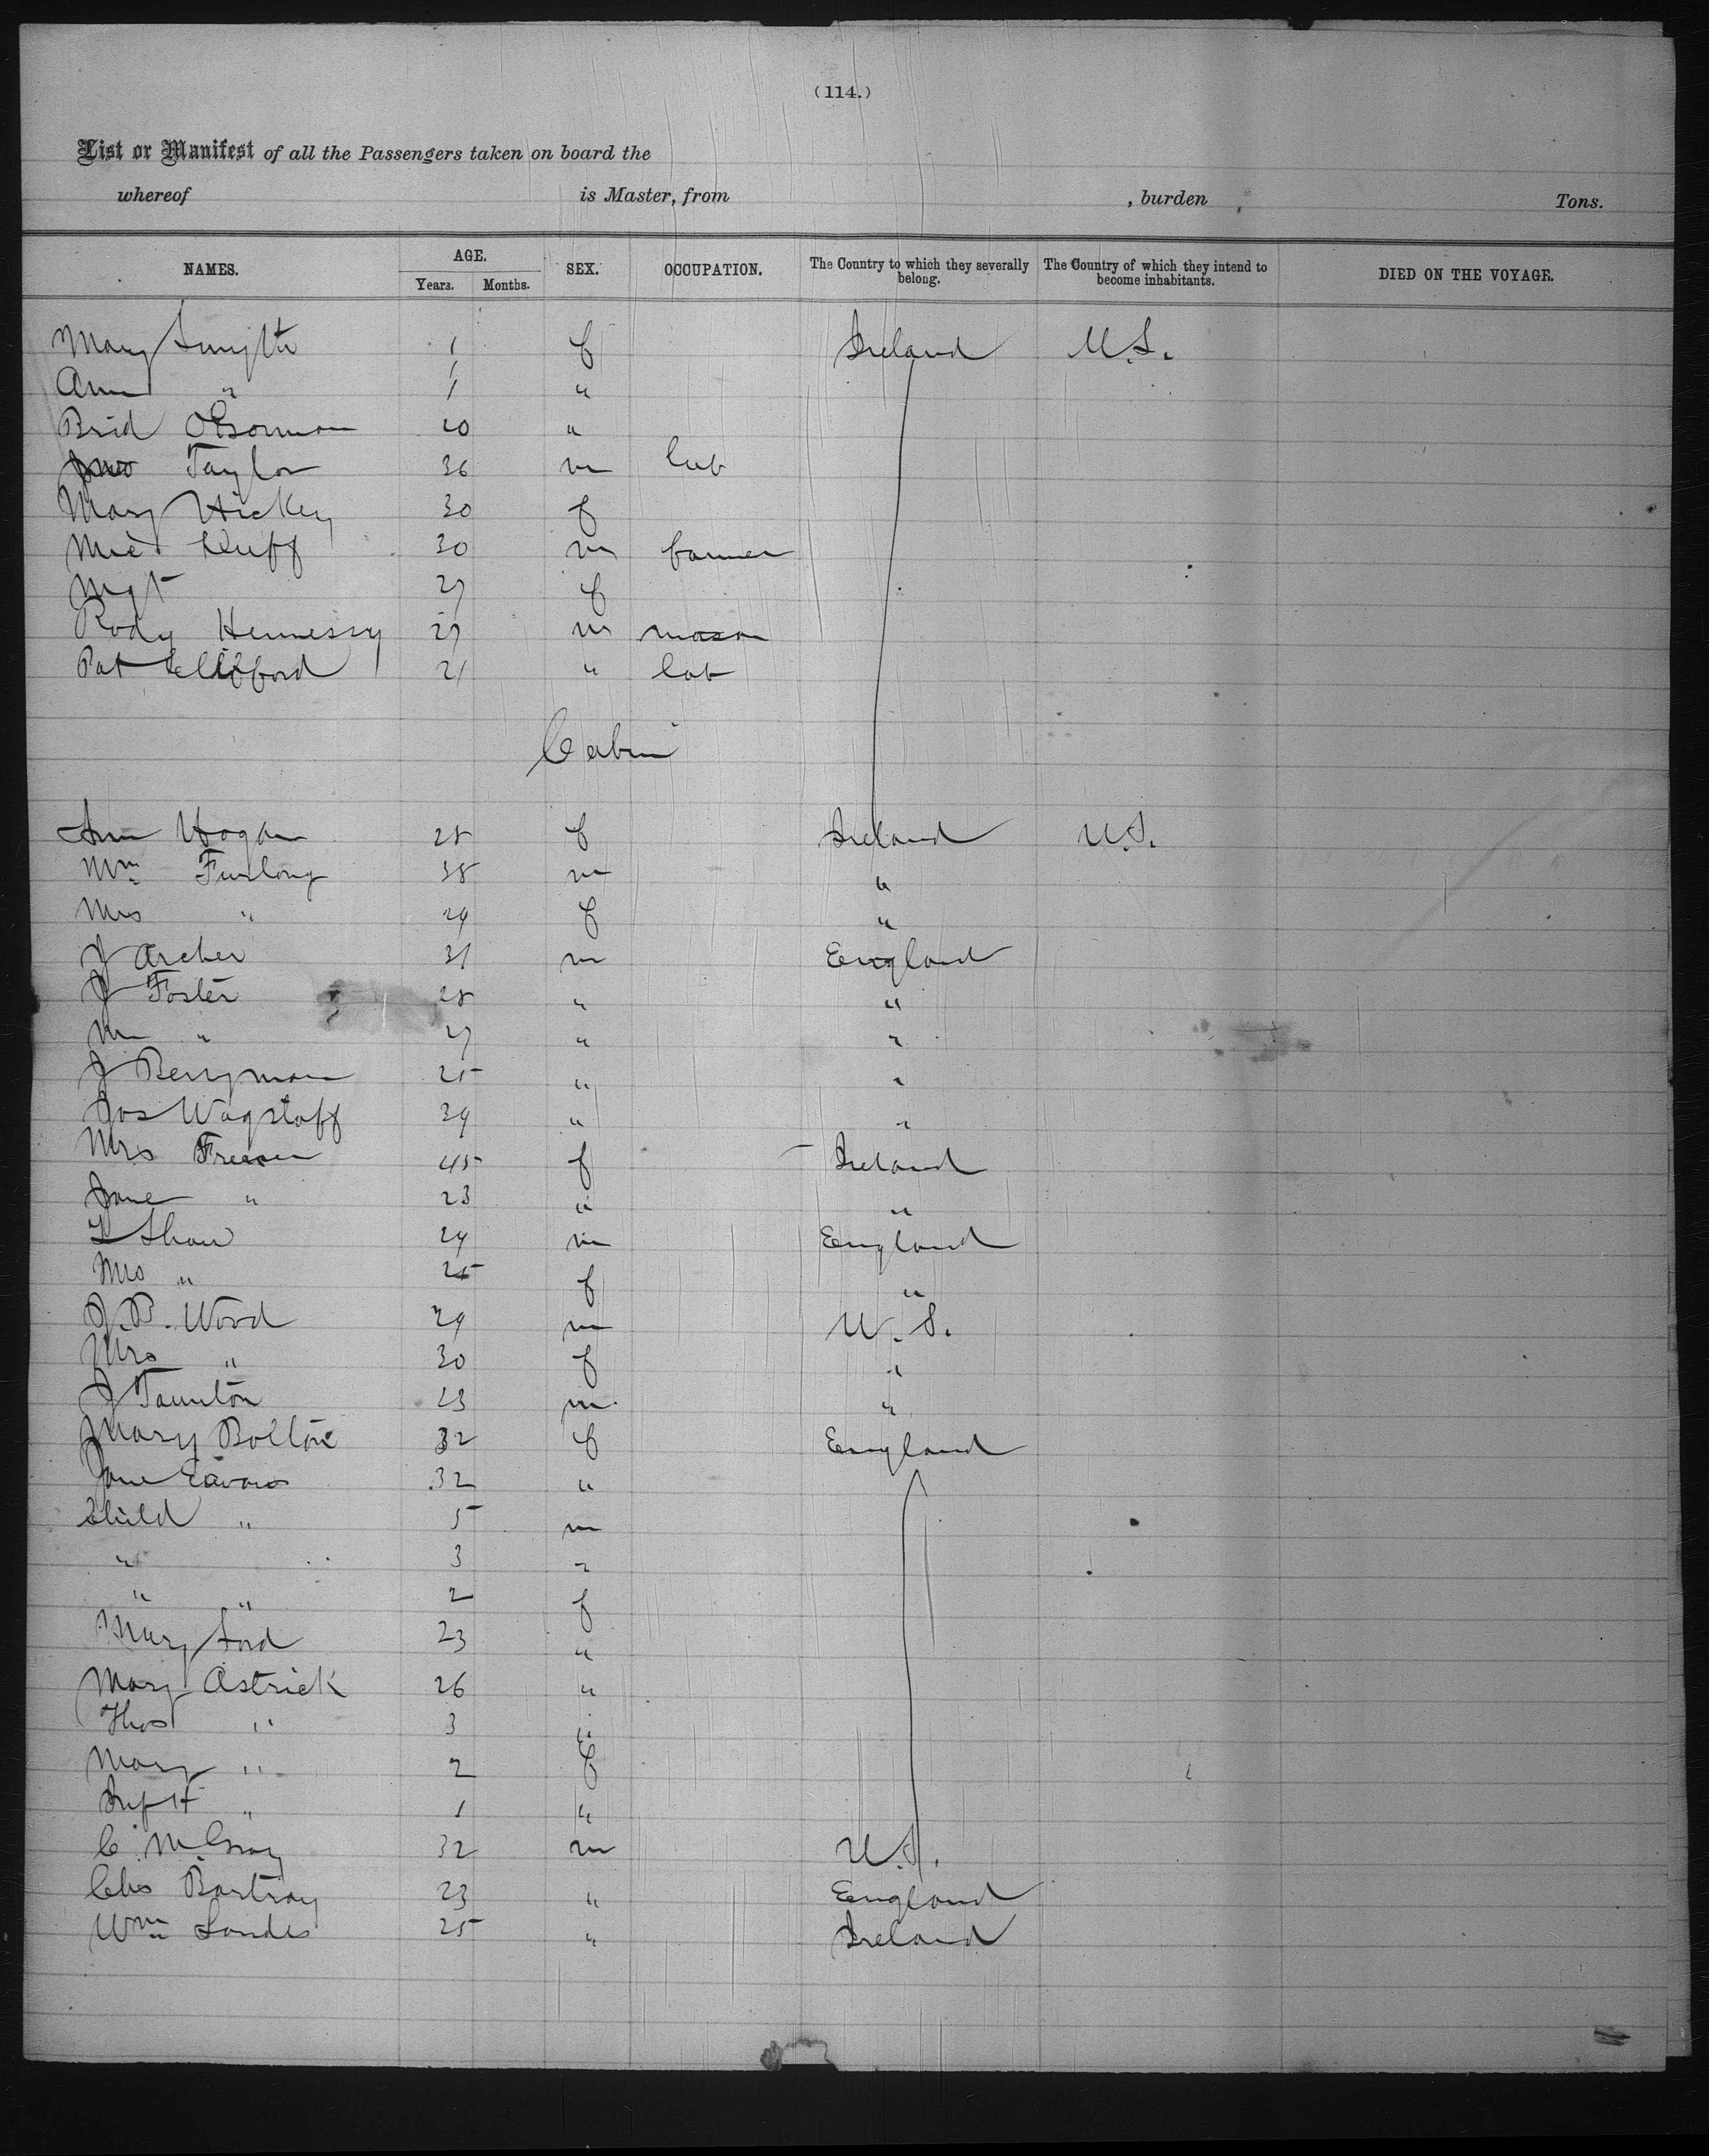 (114.)
List or Manifest of all the Passengers taken on board the
whereof is Master, from , burden , Tons.
NAMES. AGE. Years. Months. SEX. OCCUPATION. The Country to which they severally belong. The Country of which they intend to become inhabitants. DIED ON THE VOYAGE.
Mary Smyth 1 f Ireland U.S.
Ann " 1 "
Brid OGorman 20 "
Jno Taylor 36 m lab
Mary Hickey 30 f
Mic Duff 30 m farmer
Mgt 27 f
Rody Hennessy 27 m mason
Pat Clifford 21 " lab
Cabin
Ann Hogan 28 f Ireland U.S.
Wm Furlong 38 m "
Mrs " 29 f "
J Archer 31 m England
J Foster 28 " "
" 27 " "
J Berryman 25 " "
Jos Wagstaff 39 " "
Mrs 45 f Ireland
Jane " 23 " "
Shaw 29 m England
Mrs " 25 f "
J.B. Wood 39 m U.S.
Mrs " 30 f "
J Taunton 23 m "
Mary Bolton 32 f England
Jane 32 "
Child " 5 m
" 3 "
" " 2 f
Mary Ford 23 "
Mary Astrick 26 "
Thos " 3 "
Mary " 2 f
Inft " 1 "
C McGray 32 m U.S.
Chs Bartray 23 " England
Wm Landes 25 " Ireland